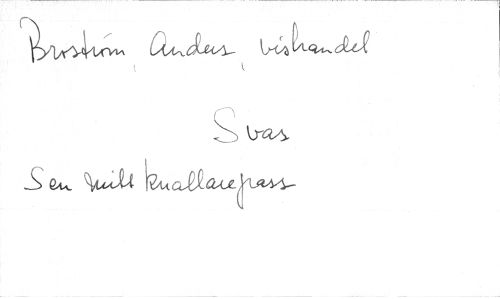 Broström, Anders, vishandel
Svas
Sen mitt knallarepass